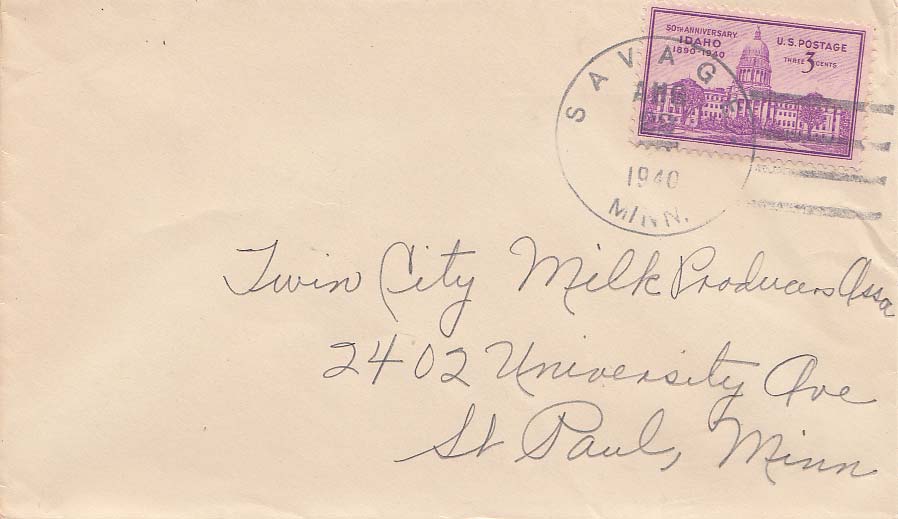 50TH ANNIVERSARY
IDAHO
1890-1940
U.S. POSTAGE
THREE 3 CENTS
SAVAGE
AUG
1940
MINN.
Twin City Milk Producers Assn
2402 University Ave
St Paul, Minn